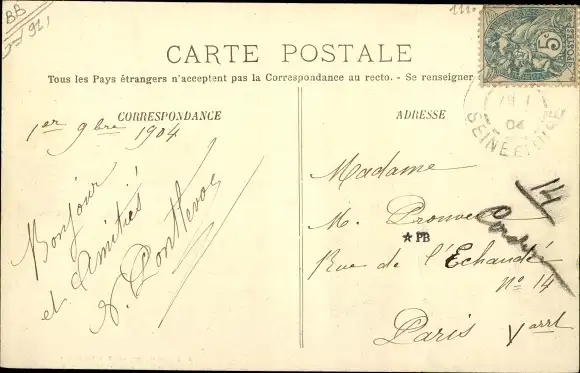 BB
CARTE POSTALE
Tous les Pays étrangers n'acceptent pas la Correspondance au recto. - Se renseigner
CORRESPONDANCE
1er 9bre 1904
Bonjour
et Amitiés
ADRESSE
5c
POSTES
04
SEINE ET OISE
Madame
M. Prouvet
★ PB
Rue de l'Echaudé
No 14
Paris
14